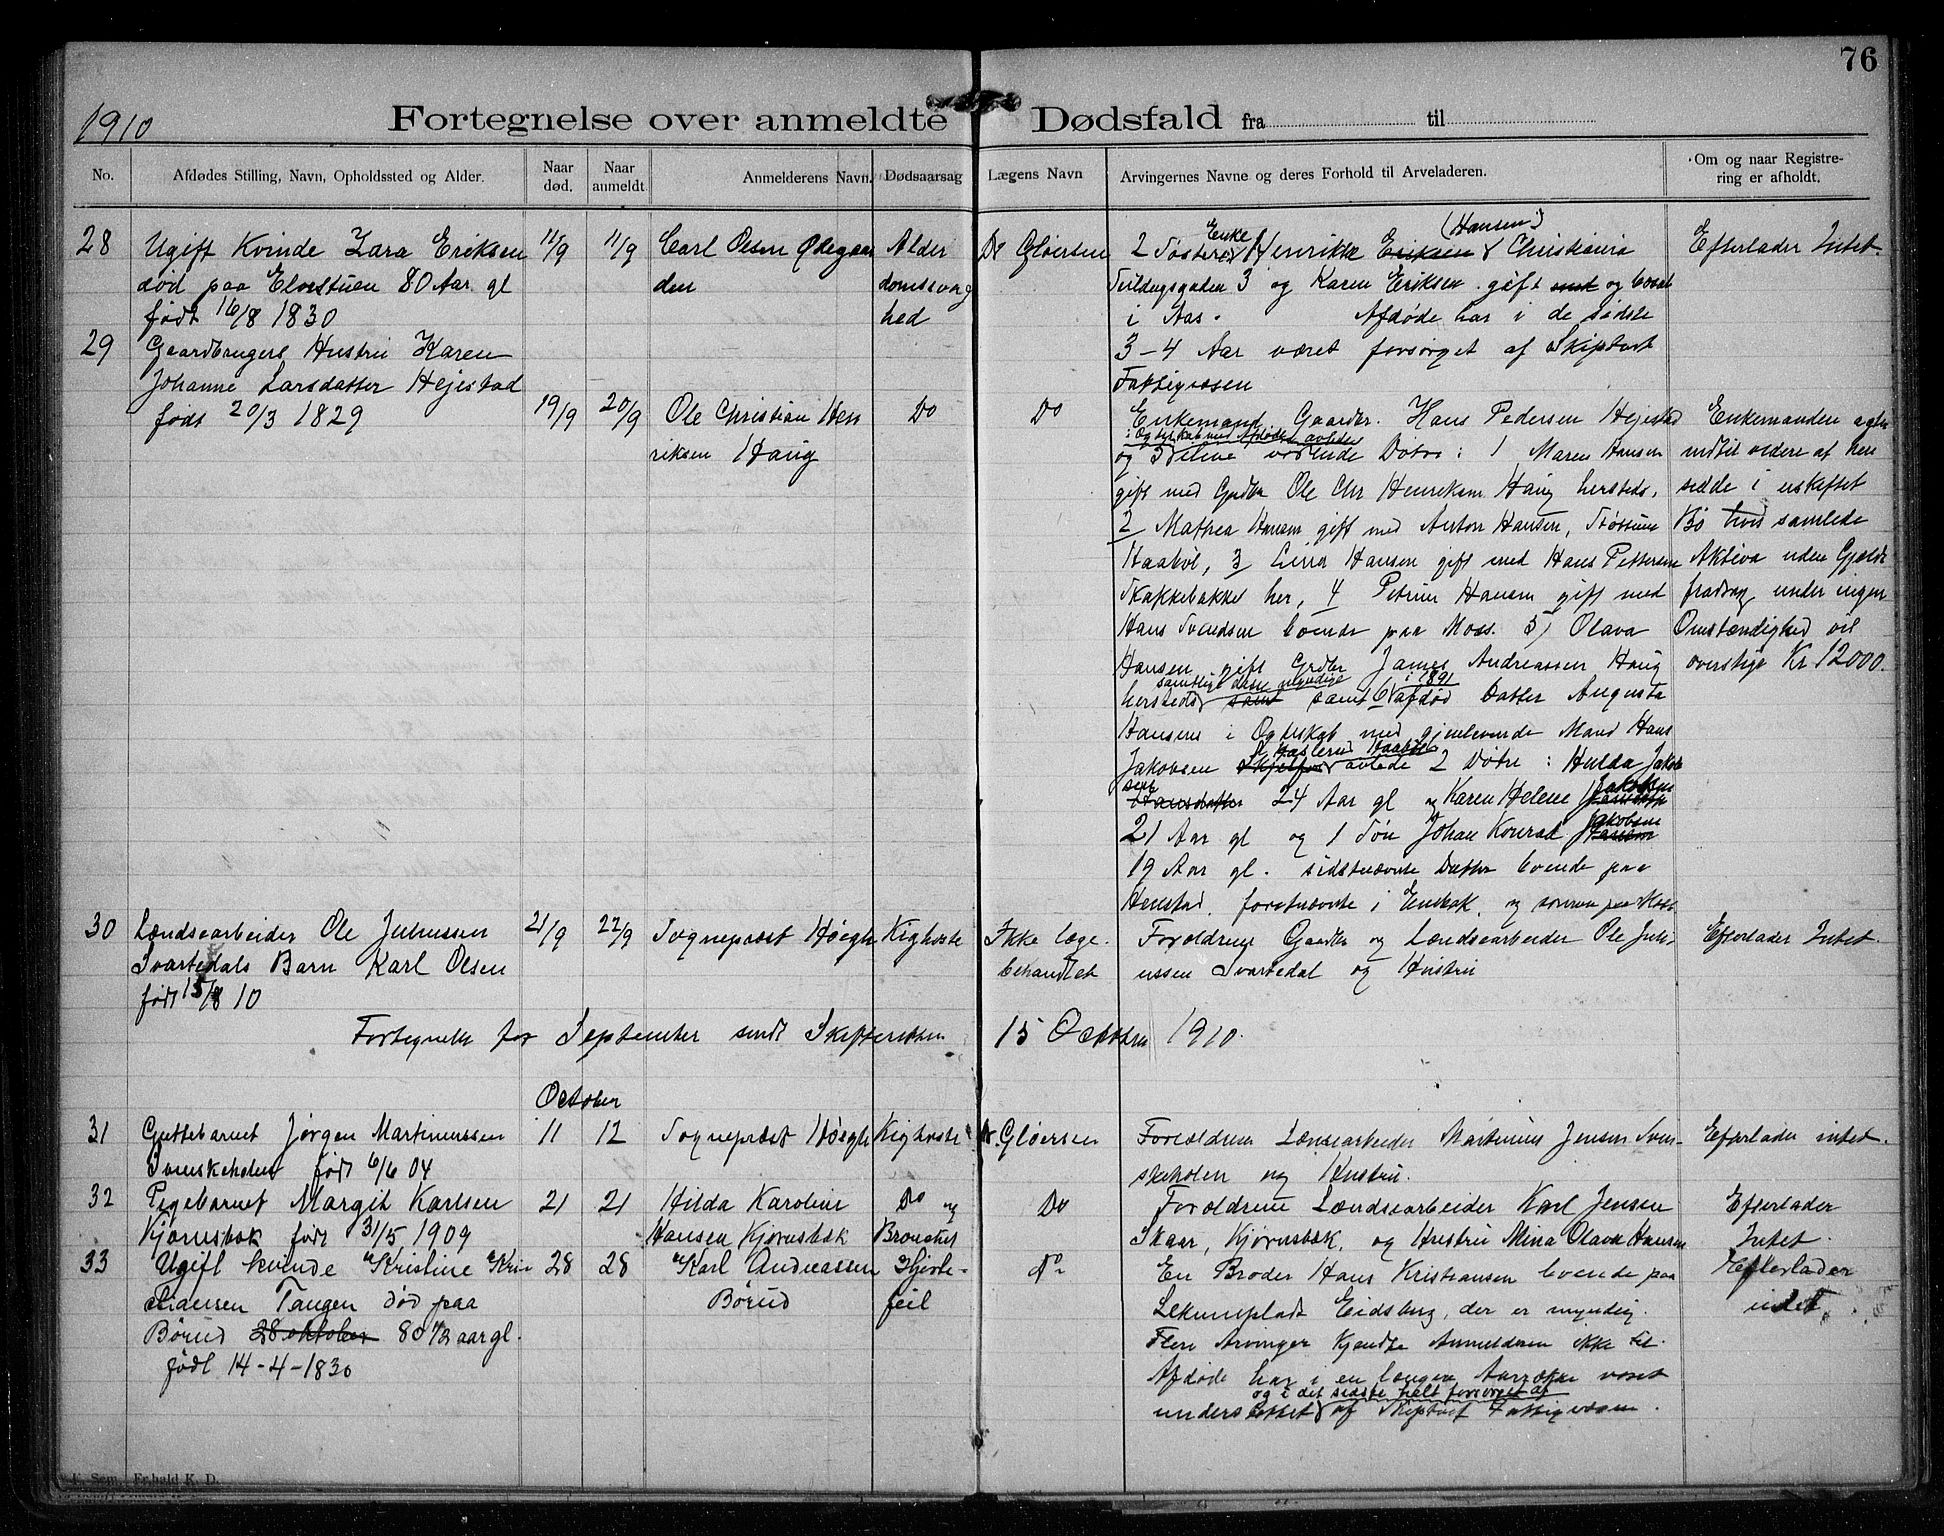 76
1910
Fortegnelse over anmeldte Dødsfald fra til
No.
Afdødes Stilling, Navn, Opholdssted og Alder.
Naar død.
Naar anmeldt.
Anmelderens Navn.
Dødsaarsag
Lægens Navn
Arvingernes Navne og deres Forhold til Arveladeren.
Om og naar Registre-
ring er afholdt.
28
Ugift Kvinde Zara Eriksen
død paa Elvestuen 80 Aar gl
født 16/8 1830
11/9
11/9
Carl Olsen Ødegaar
den
Alder
domssvag
hed
Dr Gløersen
Enke (Hansen)
2 Søstere Henrikke Eriksen Christiania
3 og Karen Eriksen gift og bosat
i Aas. Afdøde har i de sidste
3-4 Aar været forsørget af Skiptvet
Fattigvæsen
Efterlader Intet.
29
Gaardbrugers Hustru Karen
Johanne Larsdatter Hejestad
født 20/3 1829
19/9
20/9
Ole Christian Hen
riksen Haug
Do
Do
Enkemand Gaardbr. Hans Pedersen Hejestad
i Ægteskab med Afdøde avlede
og 5 ilive værende Døtre: 1 Maren Hansen
gift med Grdbr Ole Chr Henriksen Haug hersteds,
2 Mathea Hansen gift med Anton Hansen,
Haabøl, 3 Lina Hansen gift med Hans Pettersen
Skakkebakke her, 4 Petrine Hansen gift med
Hans Svendsen boende paa Moss. 5) Olava
Hansen gift Grdbr James Andreassen Haug
samtlige disse myndige i 1891
hersteds samt samt 6 afdød Datter Augusta
Hansens i Ægteskab med gjenlevende Mand Hans
Haabøl
Jakobsen avlede 2 Døtre: Hulda Jakob
sen
Hansdatter 24 Aar gl og Karen Helene Jakobsen
21 Aar gl og 1 Søn Johan Konrad Jakobsen
19 Aar gl. sidstnævnte Datter boende paa
førstnævnte i Enebak, og sønnen paa Moss
Enkemanden agter
indtil videre at hen
sidde i uskiftet
Bo hvis samlede
Aktiva uden Gjælds
fradrag under ingen
Omstændighed vil
overstige Kr 12000.
30
Lændsearbeider Ole Juliussen
Svartedals Barn Karl Olsen
født 15/8 10
21/9
22/9
Sogneprest Høegh
Kighoste
Ikke læge-
behandlet
Forældrene Gaardbr og Lændsearbeider Ole Juli-
ussen Svartedal og Hustru
Efterlader Intet.
Fortegnelse for September sendt Skifteretten 15 October 1910.
October
31
Guttebarnet Jørgen Martinussen
Svenskeholen født 6/6 04
11
12
Sogneprest Høegh
Kighoste
Dr. Gløersen
Forældrene Lænsearbeider Martinius Jensen Sven-
skeholen og Hustru.
Efterlader intet.
32
Pigebarnet Margit Karlsen
Kjørnsbøk født 31/5 1909
21
21
Hilda Karoline
Hansen Kjørnsbøk
Do og
Bronchit
Do
Forældrene Lændsearbeider Karl Jensen
Skaar, Kjørnsbøk, og Hustru Mina Olava Hansen
Efterlader
Intet.
33
Ugift kvinde Kristine Kri
stiansen Tangen død paa
Børud 28 oktober 80 1/2 aar gl.
født 14-4-1830
28
28
Karl Andreassen
Børud
Hjerte-
feil
Do
En Broder Hans Kristiansen boende paa
Lekumplads Eidsberg, der er myndig.
Flere Arvinger kjendte Anmelderen ikke til.
Afdøde har i en længere Aarrække været
og i det sidste helt forsørget af
understøttet af Skiptvet Fattigvæsen.
Efterlader
intet.